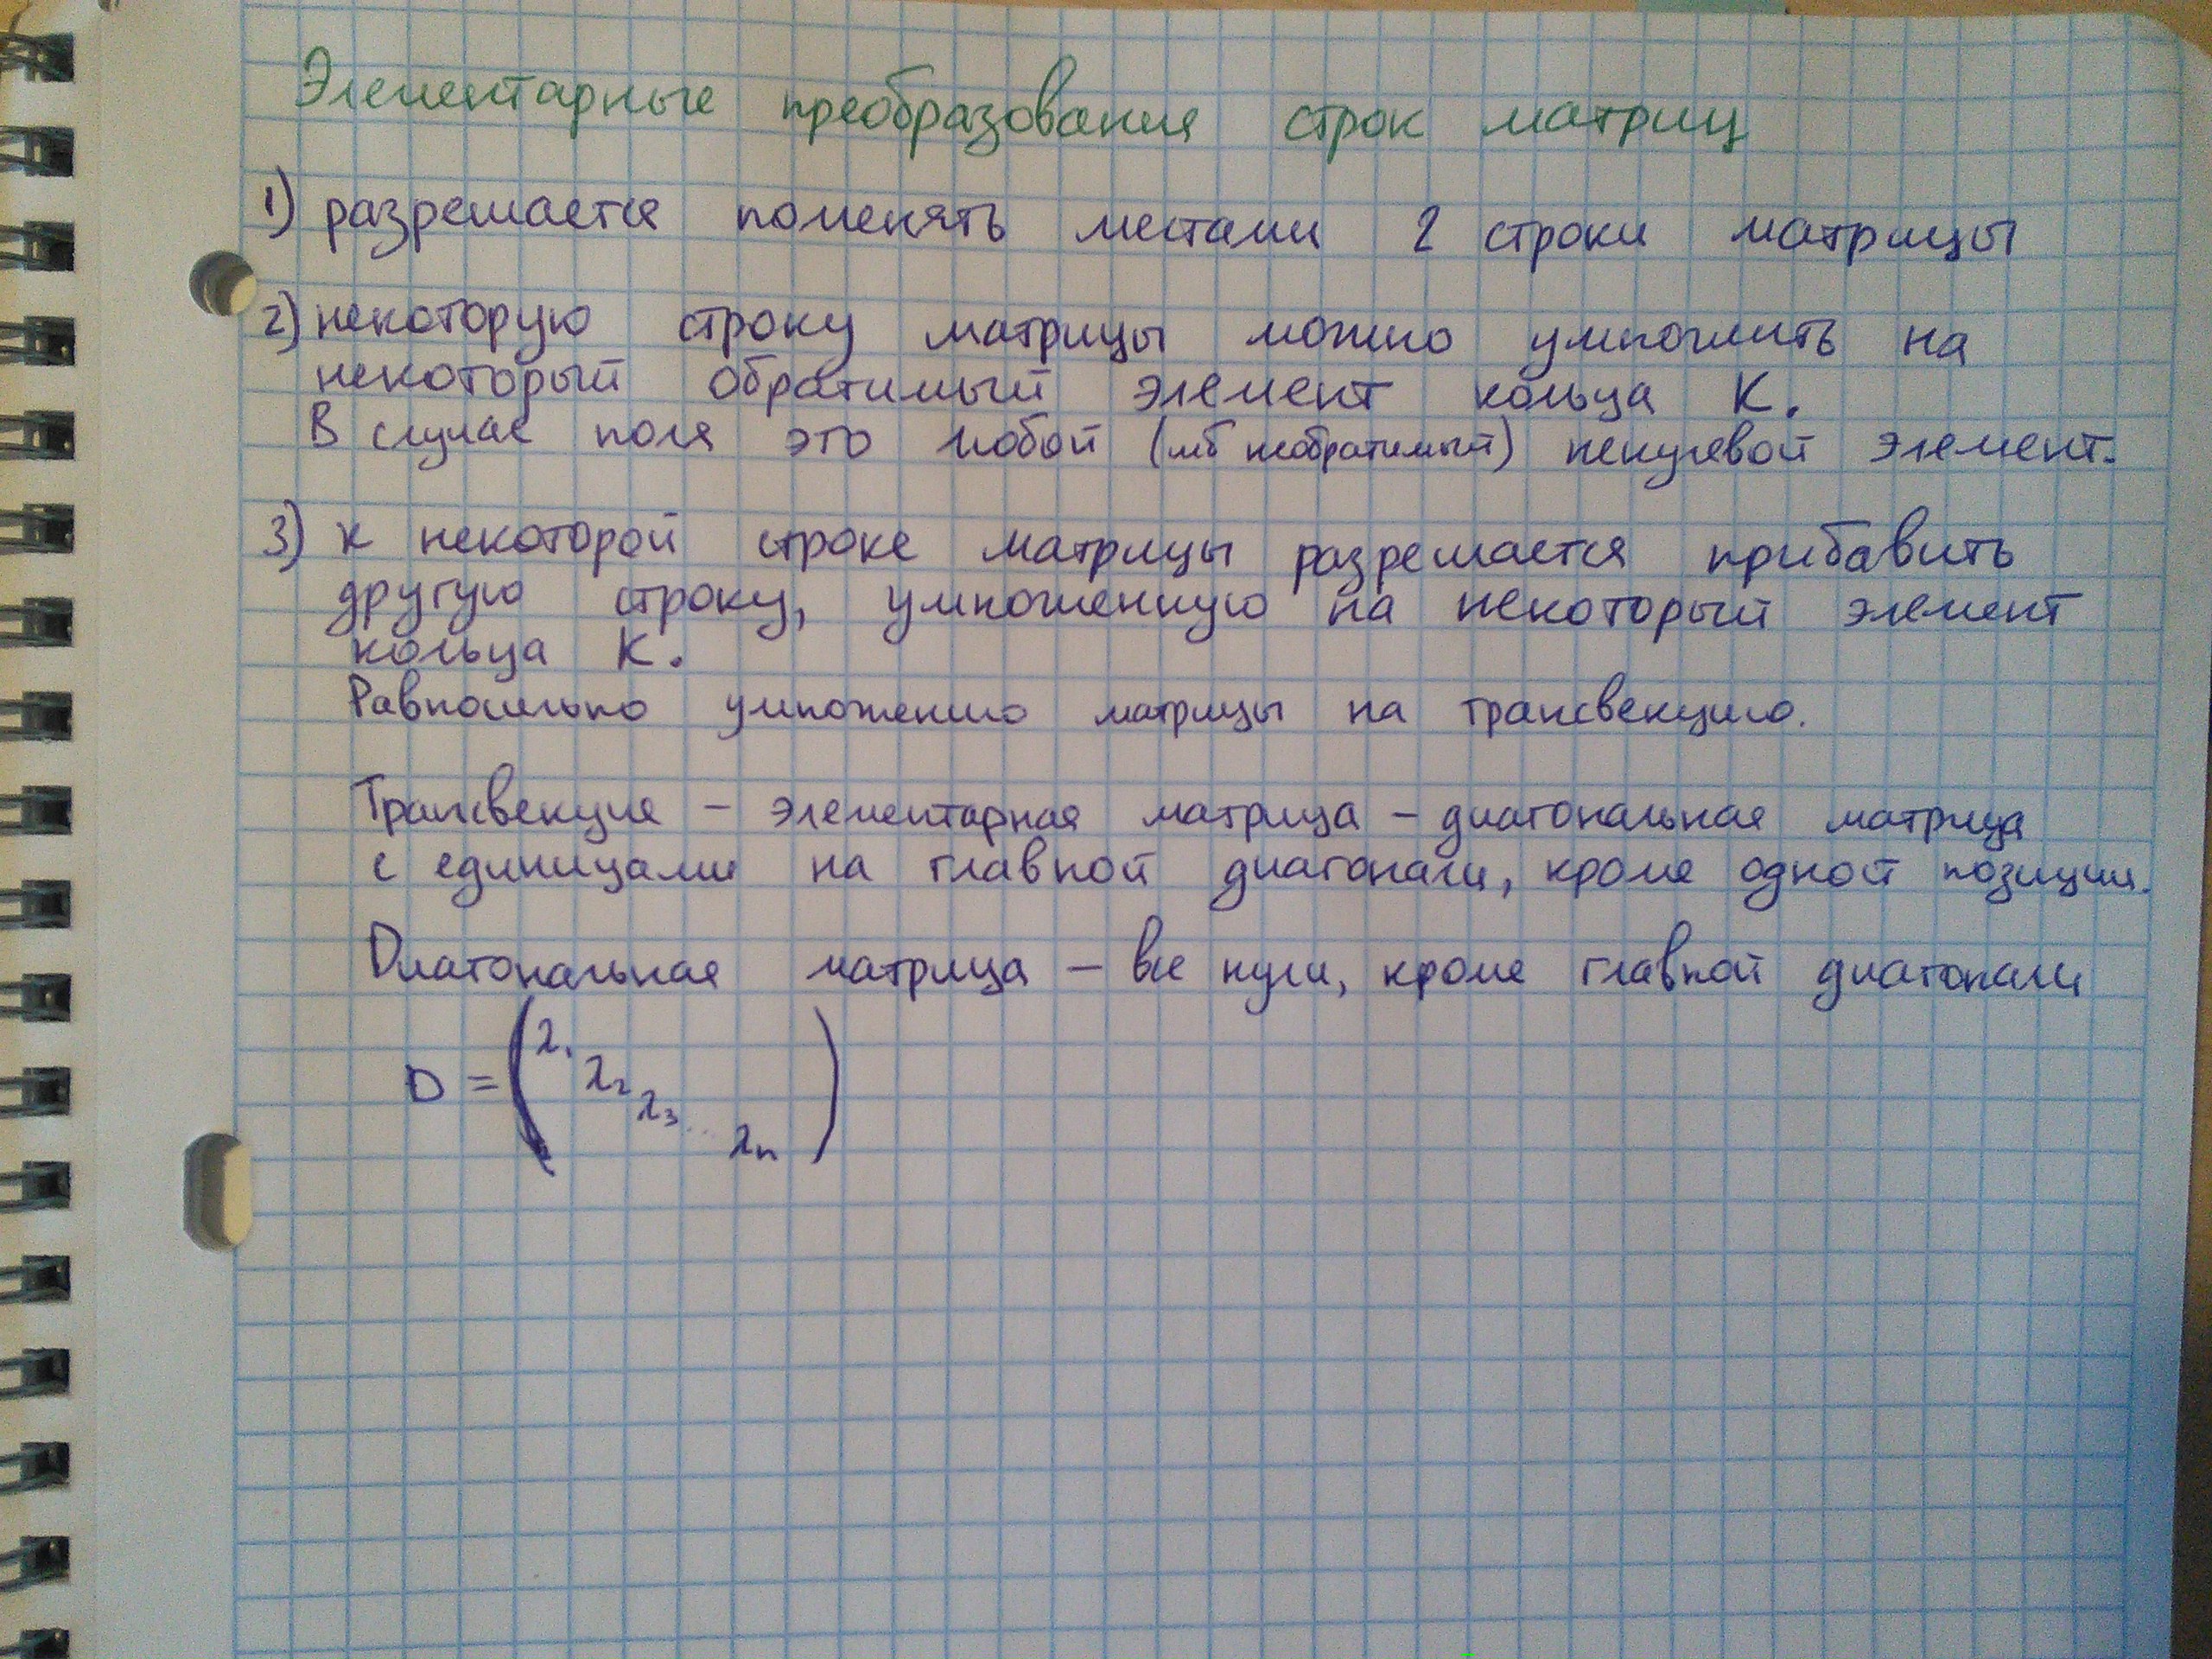 Элементарные преобразования строк матриц
1) разрешается поменять местами 2 строки матрицы
2) некоторую строку матрицы можно умножить на
некоторый обратимый элемент кольца K.
В случае поля это любой (мб необратимый) ненулевой элемент.
3) к некоторой строке матрицы разрешается прибавить
другую строку, умноженную на некоторый элемент
кольца K.
Равносильно умножению матрицы на трансвекцию.
Трансвекция – элементарная матрица – диагональная матрица
с единицами на главной диагонали, кроме одной позиции.
Диагональная матрица – все нули, кроме главной диагонали
D = (λ₁
λ₂
λ₃ ...
λₙ)